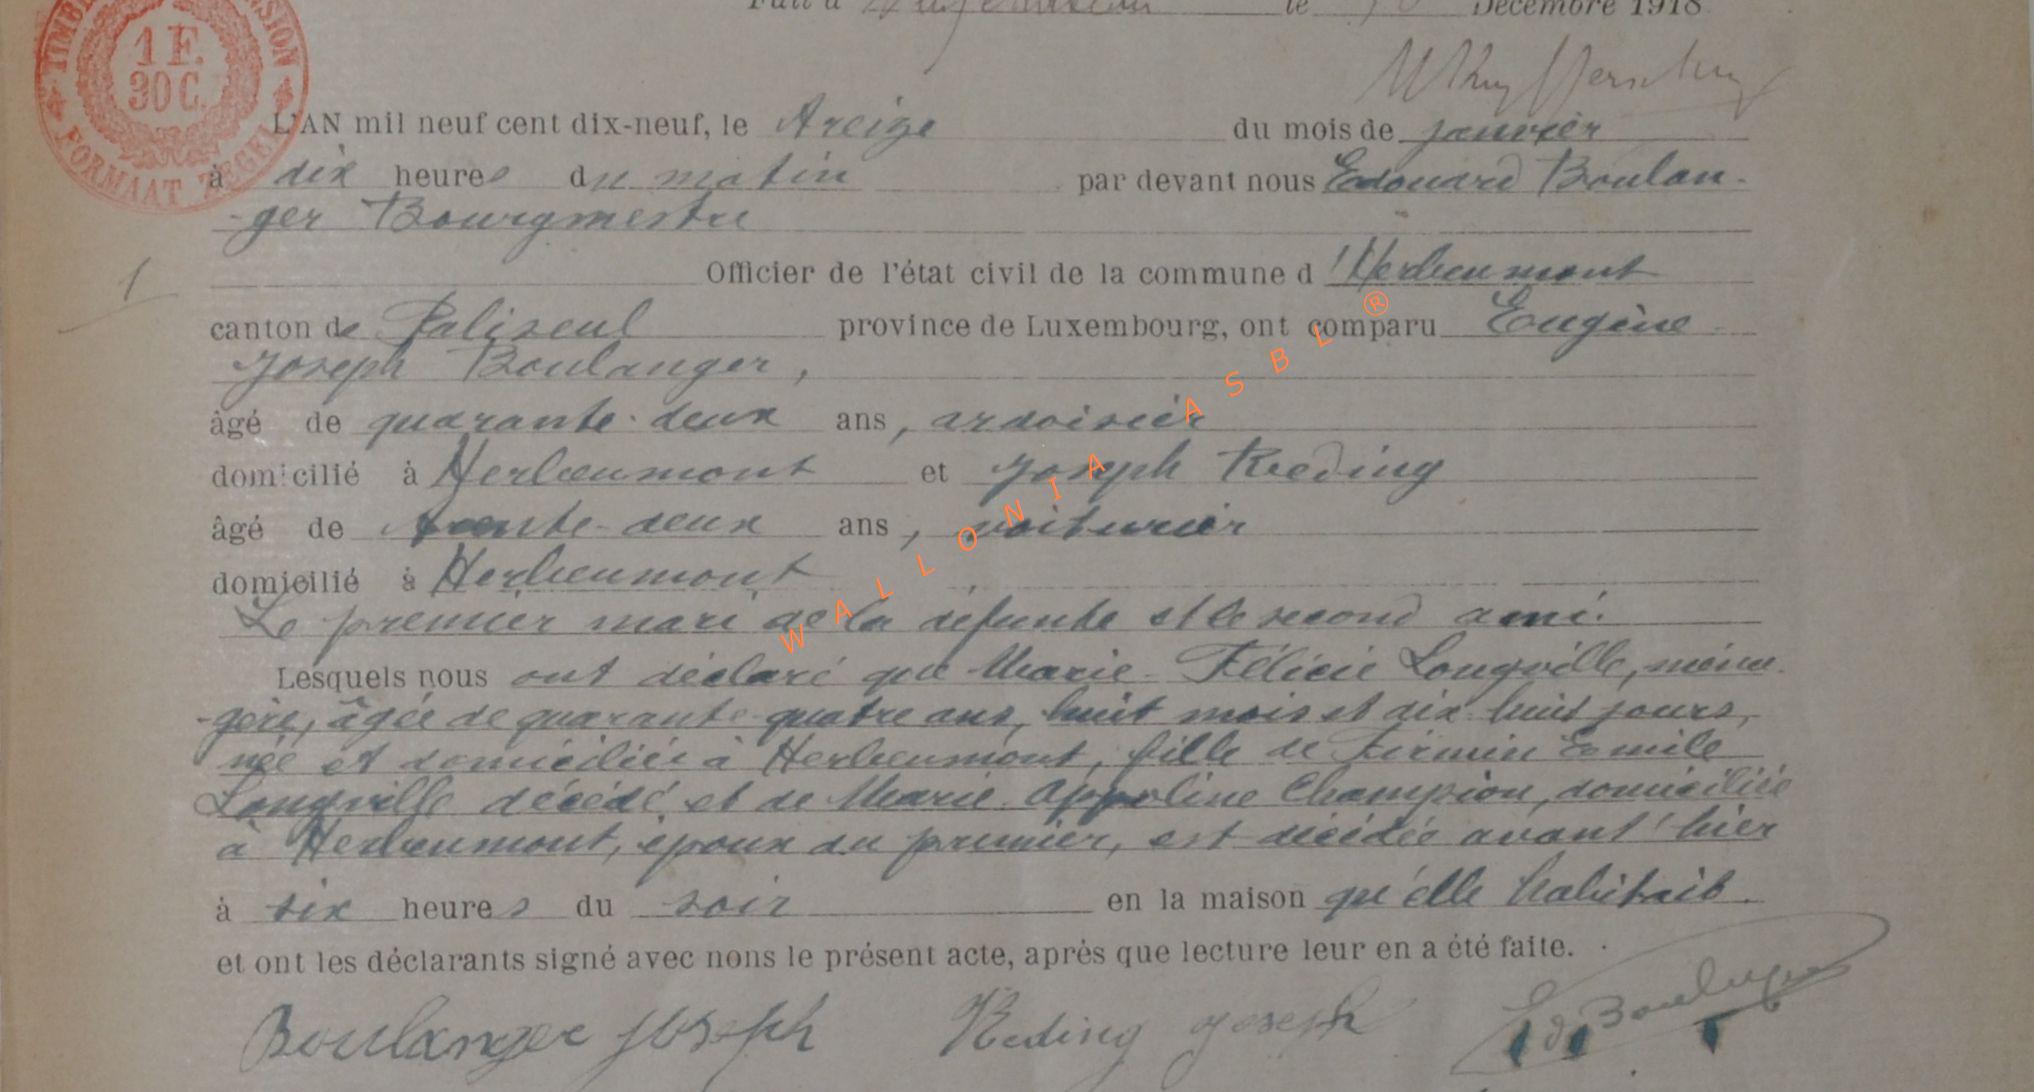 Fait à Neufchâteau le 10 Décembre 1918
TIMBRE DIMENSION
1 F.
30 C.
FORMAAT ZEGEL
L'AN mil neuf cent dix-neuf, le treize du mois de janvier
à dix heures du matin par devant nous Edouard Boulan-
-ger Bourgmestre
1
Officier de l'état civil de la commune d'Herbeumont
canton de Paliseul province de Luxembourg, ont comparu Eugène
Joseph Boulanger,
âgé de quarante-deux ans, ardoisier
domicilié à Herbeumont et Joseph Reding
âgé de trente-deux ans, voiturier
domicilié à Herbeumont
Le premier mari de la défunte et le second ami.
Lesquels nous ont déclaré que Marie-Félicie Longville, ména-
-gère, âgée de quarante-quatre ans, huit mois et dix-huit jours,
née et domiciliée à Herbeumont, fille de Firmin Emile
Longville décédé et de Marie-Appoline Champion, domiciliée
à Herbeumont, époux du premier, est décédée avant'hier
à six heures du soir en la maison qu'elle habitait.
et ont les déclarants signé avec nous le présent acte, après que lecture leur en a été faite.
Boulanger Joseph Reding Joseph Ed Boulanger
WALLONIA ASBL ®